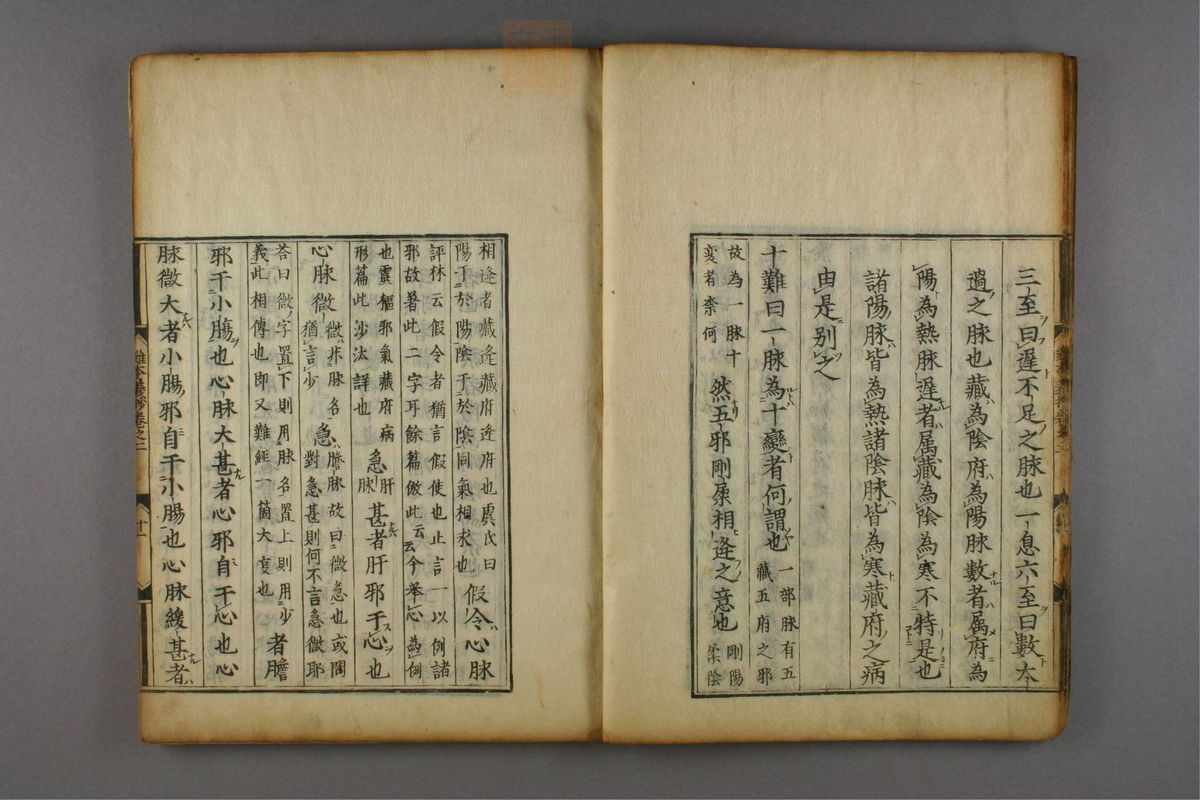 三至曰遲不足之脉也一息六至曰數太
過之脉也藏為陰府為陽脉數者属府為
陽為熱脉遲者属藏為陰為寒不特是也
諸陽脉皆為熱諸陰脉皆為寒藏府之病
由是别之
十難曰一脉為十變者何謂也一部脉有五藏五府之邪
故為一脉十變者奈何然五邪剛柔相逢之意也剛陽柔陰
相逢者藏逢藏府逢府也虞氏曰陽干於陽陰干於陰同氣相求也假令心脉
評林云假令者猶言假使也止言一以例諸邪故著此二字耳餘篇倣此云云今举心為例
也靈樞邪氣藏府病形篇此沙汰詳也急肝脉甚者肝邪干心也
心脉微微非脉名猶言少急膽脉故曰微急也或問對急甚則何不言急微耶
答曰微字置下則用脉名置上則用少義此相傳也即又難經一箇大叓也者膽
邪干小膓也心脉大甚者心邪自干心也心
脉微大者小腸邪自干小腸也心脉緩甚者
卷之二
十一